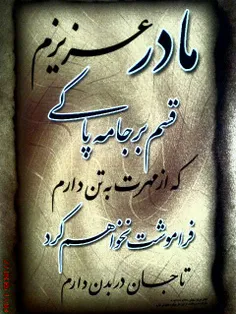 مادر عزیزم
قسم بر جامه پاکی
که از مهرت به تن دارم
فراموشت نخواهم کرد
تا جان در بدن دارم